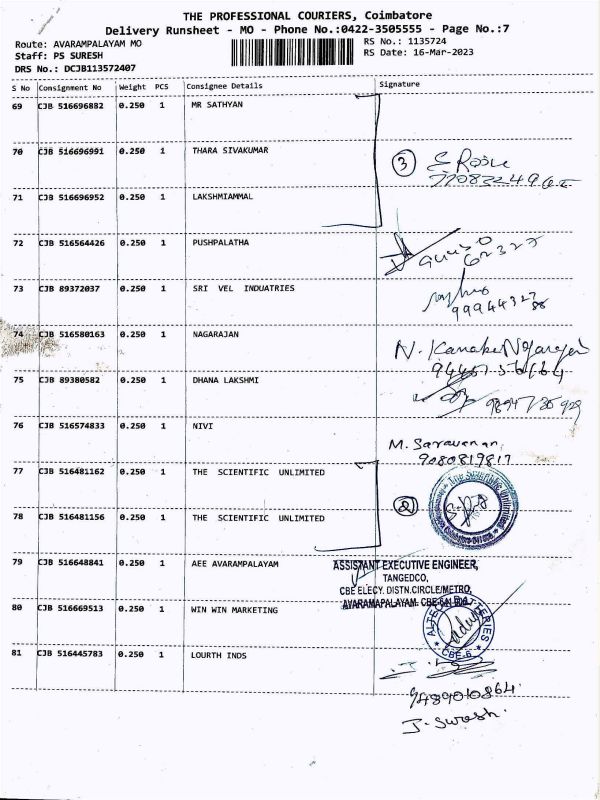 THE PROFESSIONAL COURIERS, Coimbatore
Delivery Runsheet - MO - Phone No.:0422-3505555 - Page No.:7
Route: AVARAMPALAYAM MO
RS No.: 1135724
Staff: PS SURESH
RS Date: 16-Mar-2023
DRS No.: DCJB113572407
S No Consignment No Weight PCS Consignee Details Signature
69 CJB 516696882 0.250 1 MR SATHYAN
70 CJB 516696991 0.250 1 THARA SIVAKUMAR
3
71 CJB 516696952 0.250 1 LAKSHMIAMMAL
72 CJB 516564426 0.250 1 PUSHPALATHA
73 CJB 89372037 0.250 1 SRI VEL INDUATRIES
74 CJB 516580163 0.250 1 NAGARAJAN
N.
75 CJB 89380582 0.250 1 DHANA LAKSHMI
76 CJB 516574833 0.250 1 NIVI
M. Saravanan.
9080819817
77 CJB 516481162 0.250 1 THE SCIENTIFIC UNLIMITED
The Scientific Unlimited
2
78 CJB 516481156 0.250 1 THE SCIENTIFIC UNLIMITED
79 CJB 516648841 0.250 1 AEE AVARAMPALAYAM
ASSISTANT EXECUTIVE ENGINEER,
TANGEDCO,
CBE ELECY. DISTN.CIRCLE/METRO,
AVARAMAPALAYAM.
80 CJB 516669513 0.250 1 WIN WIN MARKETING
CBE-6
81 CJB 516445783 0.250 1 LOURTH INDS
9489010864.
J. Suresh.